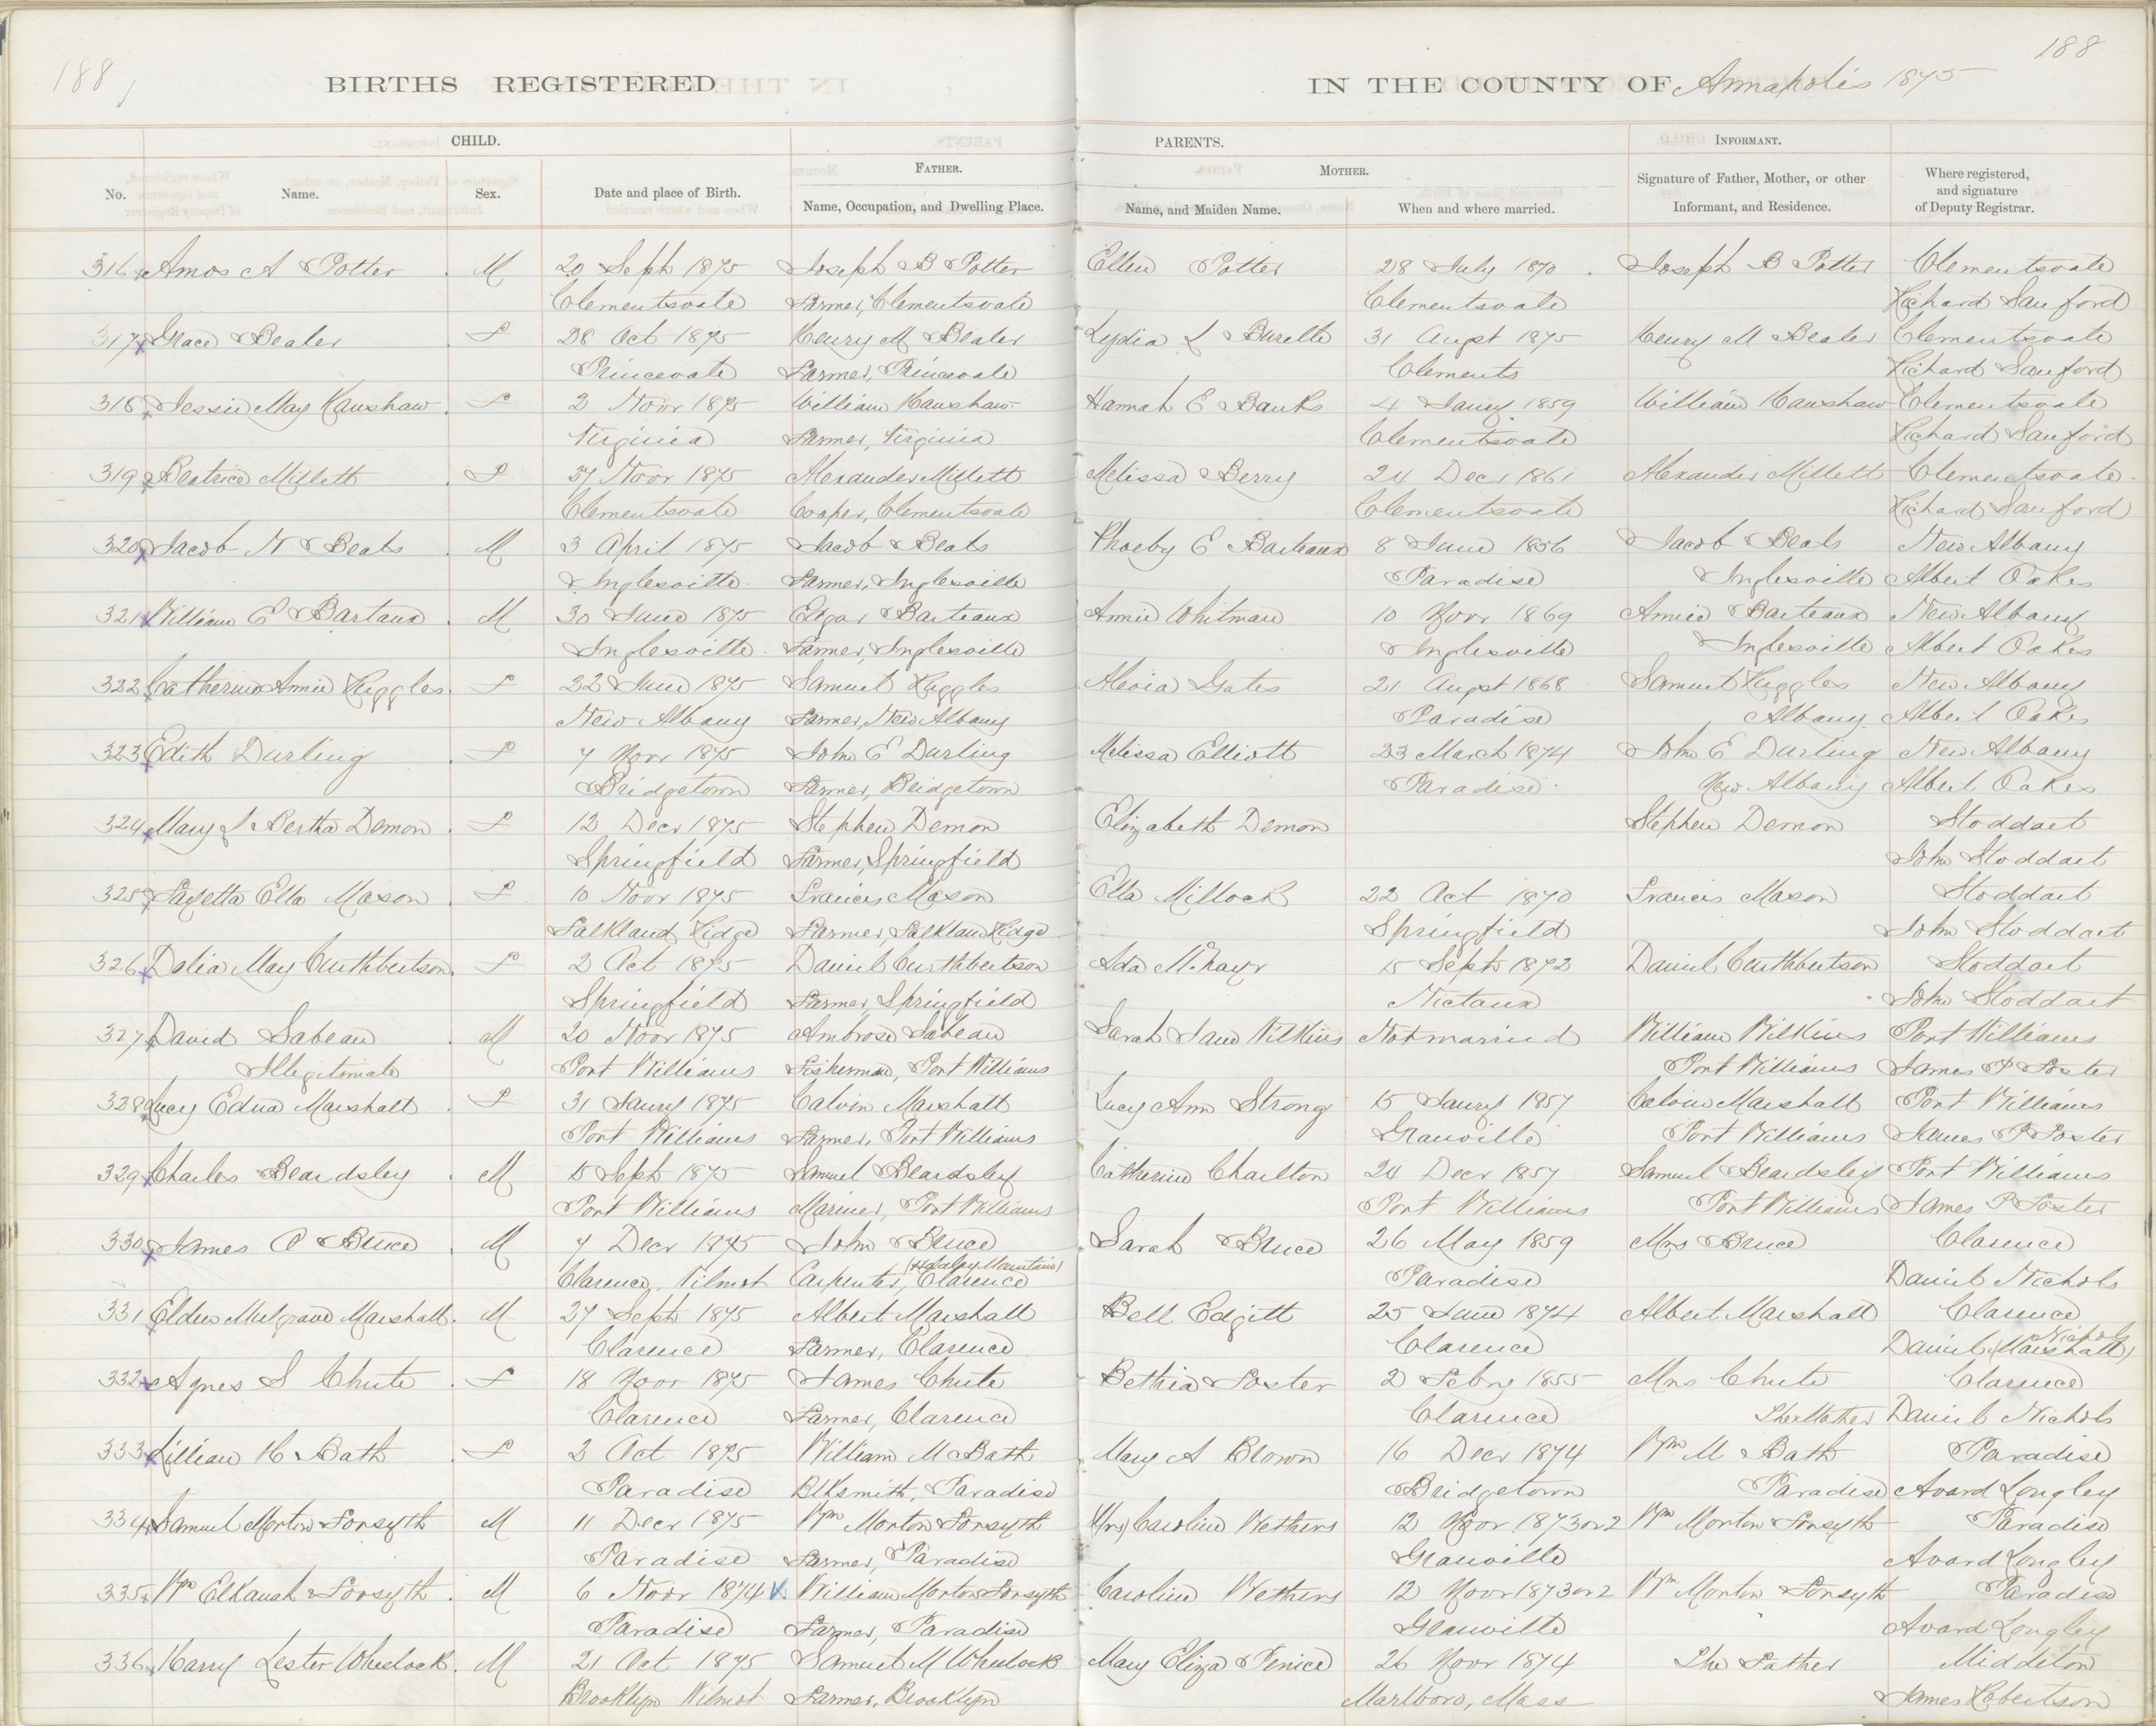 188
188
BIRTHS REGISTERED IN THE COUNTY OF Annapolis 1875
CHILD. PARENTS. INFORMANT.
FATHER. MOTHER.
No. Name. Sex. Date and place of Birth. Name, Occupation, and Dwelling Place. Name, and Maiden Name. When and where married. Signature of Father, Mother, or other Informant, and Residence. Where registered, and signature of Deputy Registrar.
316 Amos A Potter M 20 Sept 1875 Joseph B Potter Ellen Potter 28 July 1870 Joseph B Potter Clementsvale
Clementsvale Farmer, Clementsvale Clementsvale Richard Sanford
317 Grace Bealer F 28 Oct 1875 Henry M Bealer Lydia L 31 Augst 1875 Henry M Bealer Clementsvale
Princevale Farmer, Princevale Clements Richard Sanford
318 Jessie May Hanshaw F 2 Novr 1875 William Hanshaw Hannah E Banks 4 Jany 1859 William Hanshaw Clementsvale
Virginia Farmer, Virginia Clementsvale Richard Sanford
319 Beatrice Millett F Novr 1875 Alexander Millett Melissa Berry 24 Decr 1861 Alexander Millett Clementsvale
Clementsvale Cooper, Clementsvale Clementsvale Richard Sanford
320 Jacob N Beals M 3 April 1875 Jacob Beals Phoeby E Barteaux 8 June 1856 Jacob Beals New Albany
Inglesville Farmer, Inglesville Paradise Inglesville Albert Oakes
321 William E Bartaux M 30 June 1875 Edgar Barteaux Annie Whitman 10 Novr 1869 Annie Barteaux New Albany
Inglesville Farmer, Inglesville Inglesville Inglesville Albert Oakes
322 Catherine Annie Ruggles F 22 June 1875 Samuel Ruggles Gates 21 Augst 1868 Samuel Ruggles New Albany
New Albany Farmer, New Albany Paradise Albany Albert Oakes
323 Edith Durling F 7 Novr 1875 John E Durling Melissa Elliott 23 March 1874 John E Durling New Albany
Bridgetown Farmer, Bridgetown Paradise New Albany Albert Oakes
324 Mary Bertha Demon F 12 Decr 1875 Stephen Demon Elizabeth Demon Stephen Demon Stoddart
Springfield Farmer, Springfield John Stoddart
325 Ella Mason F 10 Novr 1875 Francis Mason Ella Millock 22 Oct 1870 Francis Mason Stoddart
Falkland Ridge Farmer, Falkland Ridge Springfield John Stoddart
326 Delia May Cuthbertson F 2 Oct 1875 Daniel Cuthbertson Ada 15 Sept 1872 Daniel Cuthbertson Stoddart
Springfield Farmer, Springfield Nictaux John Stoddart
327 David Sabean M 20 Novr 1875 Ambrose Sabean Sarah Jane Wilkins Not married William Wilkins Port Williams
Illegitimate Port Williams Fisherman, Port Williams Port Williams James P Foster
328 Lucy Edna Marshall F 31 Jany 1875 Calvin Marshall Lucy Ann Strong 15 Jany 1857 Calvin Marshall Port Williams
Port Williams Farmer, Port Williams Granville Port Williams James P Foster
329 Charles Beardsley M 15 Sept 1875 Samuel Beardsley Catherine Charlton 24 Decr 1857 Samuel Beardsley Port Williams
Port Williams Mariner, Port Williams Port Williams Port Williams James P Foster
330 James O Bruce M 7 Decr 1875 John Bruce Sarah Bruce 26 May 1859 Mrs Bruce Clarence
Clarence, Wilmot Carpenter, Clarence Paradise Daniel Nichols
331 Marshall M 27 Sept 1875 Albert Marshall Bell Edgitt 25 June 1874 Albert Marshall Clarence
Clarence Farmer, Clarence Clarence Daniel (Marshall) Nichols
332 Agnes S Chute F 18 Novr 1875 James Chute Bethia Foster 2 Feby 1855 Mrs Chute Clarence
Clarence Farmer, Clarence Clarence The Mother Daniel Nichols
333 Lillian H Bath F 3 Oct 1875 William M Bath Mary A Brown 16 Decr 1874 Wm M Bath Paradise
Paradise Blksmith, Paradise Bridgetown Paradise Avard Longley
334 Samuel Morton Forsyth M 11 Decr 1875 Wm Morton Forsyth (Mrs) Caroline Wethers 12 Novr 1873 or 2 Wm Morton Forsyth Paradise
Paradise Farmer, Paradise Granville Avard Longley
335 Wm Elkanah Forsyth M 6 Novr 1874 William Morton Forsyth Caroline Wethers 12 Novr 1873 or 2 Wm Morton Forsyth Paradise
Paradise Farmer, Paradise Granville Avard Longley
336 Harry Lester Wheelock M 21 Oct 1875 Samuel M Wheelock Mary Eliza 26 Novr 1874 The Father Middleton
Brooklyn Wilmot Farmer, Brooklyn Marlboro, Mass James Robertson